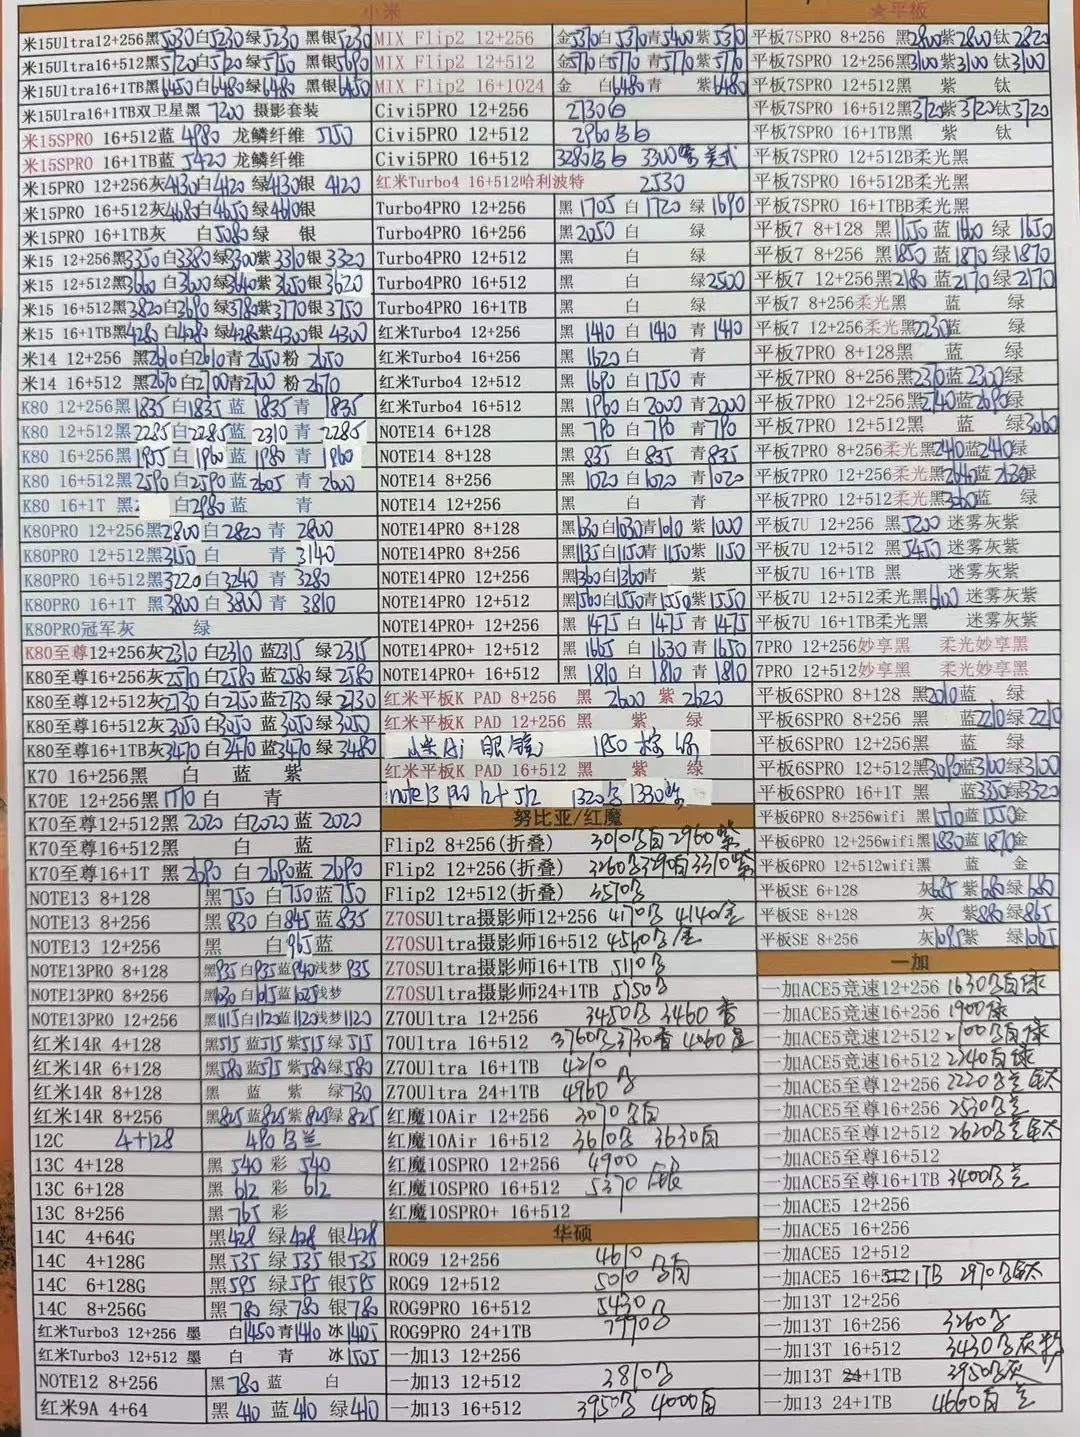 小米
米15Ultra12+256黑5030白5230绿5230 黑银5230
米15Ultra16+512黑5720白5720绿5750 黑银5690
米15Ultra16+1TB黑6450白6480绿6480 黑银6450
米15Ulra16+1TB双卫星黑 7200 摄影套装
米15SPRO 16+512蓝 4980 龙鳞纤维 5150
米15SPRO 16+1TB蓝 5420 龙鳞纤维
米15PRO 12+256灰4130白4120 绿4130银 4120
米15PRO 16+512灰4680白4650 绿4610银
米15PRO 16+1TB灰 白5080绿 银
米15 12+256黑3350白3380绿3300紫3310银3320
米15 12+512黑3600白3600绿3640紫3650银3620
米15 16+512黑3820白3690绿3780紫3770银3750
米15 16+1TB黑4280白4280绿4280紫4300银4300
米14 12+256 黑2610白2610青2650粉 2650
米14 16+512 黑2670白2700青2700 粉2670
K80 12+256黑1835白1835 蓝 1835 青 1835
K80 12+512黑2285白2285蓝 2310 青 2285
K80 16+256黑1955白1960 蓝 1980 青 1960
K80 16+512黑2590白2590蓝 2605 青 2600
K80 16+1T 黑 白2980蓝 青
K80PRO 12+256黑2800白 2820 青 2800
K80PRO 12+512黑3150 白 青 3140
K80PRO 16+512黑3220白3240 青 3280
K80PRO 16+1T 黑3800白 3800 青 3810
K80PRO冠军灰 绿
K80至尊12+256灰2310 白2310 蓝2315 绿2315
K80至尊16+256灰2570 白2580蓝2580 绿2580
K80至尊12+512灰2730 白2750蓝2730 绿2730
K80至尊16+512灰3050白3050 蓝3050绿3050
K80至尊16+1TB灰3470白3470 蓝3470 绿 3480
K70 16+256黑 白 蓝 紫
K70E 12+256黑1710 白 青
K70至尊12+512黑 2020 白2020 蓝 2020
K70至尊16+512黑 白 蓝
K70至尊16+1T 黑 2690 白2690蓝 2690
NOTE13 8+128 黑750 白750蓝750
NOTE13 8+256 黑 830 白845 蓝835
NOTE13 12+256 黑 白965蓝
NOTE13PRO 8+128 黑935白935蓝940浅梦 935
NOTE13PRO 8+256 黑1030 白1015蓝1025浅梦
NOTE13PRO 12+256 黑1115白1120蓝1120浅梦1120
红米14R 4+128 黑515 蓝515 紫515 绿515
红米14R 6+128 黑580 蓝575 紫580 绿580
红米14R 8+128 黑 蓝 紫 绿730
红米14R 8+256 黑825 蓝825 紫825 绿825
12C 4+128 490黑兰
13C 4+128 黑 540 彩 540
13C 6+128 黑 612 彩 612
13C 8+256 黑 765 彩
14C 4+64G 黑428 绿428 银428
14C 4+128G 黑535 绿535 银535
14C 6+128G 黑595 绿595 银595
14C 8+256G 黑780 绿780 银780
红米Turbo3 12+256 墨 白1450青1410 冰1405
红米Turbo3 12+512 墨 白 青 冰1505
NOTE12 8+256 黑 780 蓝 白
红米9A 4+64 黑 410 蓝 410 绿410
MIX Flip2 12+256 金5370白 5370青5400紫5370
MIX Flip2 12+512 金5770白5770 青5770紫5770
MIX Flip2 16+1024 金 白6480青 紫6480
Civi5PRO 12+256 2730白
Civi5PRO 12+512 2960黑白
Civi5PRO 16+512 3280黑白 3300紫 美式
红米Turbo4 16+512哈利波特 2530
Turbo4PRO 12+256 黑 1705 白 1720 绿 1690
Turbo4PRO 16+256 黑2050 白 绿
Turbo4PRO 12+512 黑 白 绿
Turbo4PRO 16+512 黑 白 绿2500
Turbo4PRO 16+1TB 黑 白 绿
红米Turbo4 12+256 黑 1410 白 1410 青 1410
红米Turbo4 16+256 黑1620白 青
红米Turbo4 12+512 黑 1690 白1750 青
红米Turbo4 16+512 黑 1960 白2000 青2000
NOTE14 6+128 黑 790 白 790 青790
NOTE14 8+128 黑 835 白 835 青835
NOTE14 8+256 黑 1020 白 1020 青1020
NOTE14 12+256 黑 白 青
NOTE14PRO 8+128 黑1030 白1030青1010 紫1000
NOTE14PRO 8+256 黑1135白1150青 1150紫1150
NOTE14PRO 12+256 黑1360白1360青 紫
NOTE14PRO 12+512 黑1560白1550青1550紫1550
NOTE14PRO+ 12+256 黑 1475 白 1475 青1475
NOTE14PRO+ 12+512 黑 1665 白 1630 青1650
NOTE14PRO+ 16+512 黑 1810 白 1810 青1810
红米平板K PAD 8+256 黑 2600 紫 2620
红米平板K PAD 12+256 黑 紫 绿
小米Ai 眼镜 1950
红米平板K PAD 16+512 黑 紫 绿
note13 pro 12+512 1320黑 1330
努比亚/红魔
Flip2 8+256(折叠) 3010黑白 2960紫
Flip2 12+256(折叠) 3260黑3290白3310紫
Flip2 12+512(折叠) 3570黑
Z70SUltra摄影师12+256 4170黑 4140
Z70SUltra摄影师16+512 4560黑
Z70SUltra摄影师16+1TB 5110黑
Z70SUltra摄影师24+1TB 5750黑
Z70Ultra 12+256 3450黑 3460
70Ultra 16+512 3760黑3730 4060星
Z70Ultra 16+1TB 4210
Z70Ultra 24+1TB 4960黑
红魔10Air 12+256 3070黑白
红魔10Air 16+512 3610黑 3630白
红魔10SPRO 12+256 4900
红魔10SPRO 16+512 5370黑银
红魔10SPRO+ 16+512
华硕
ROG9 12+256 4610
ROG9 12+512 5010黑白
ROG9PRO 16+512 5430
ROG9PRO 24+1TB 7790黑
一加13 12+256
一加13 12+512 3810黑
一加13 16+512 3950黑 4000白
★平板
平板7SPRO 8+256 黑2800紫2800钛 2820
平板7SPRO 12+256黑3100紫3100 钛3100
平板7SPRO 12+512黑 紫 钛
平板7SPRO 16+512黑3720紫3720钛3720
平板7SPRO 16+1TB黑 紫 钛
平板7SPRO 12+512B柔光黑
平板7SPRO 16+512B柔光黑
平板7SPRO 16+1TBB柔光黑
平板7 8+128 黑1650 蓝1660 绿 1650
平板7 8+256 黑1850 蓝1870 绿1870
平板7 12+256黑2180 蓝2170 绿2170
平板7 8+256柔光黑 蓝 绿
平板7 12+256柔光黑2230蓝 绿
平板7PRO 8+128黑 蓝 绿
平板7PRO 8+256黑2310蓝2300绿
平板7PRO 12+256黑2740蓝2690绿
平板7PRO 12+512黑 蓝 绿3060
平板7PRO 8+256柔光黑2410蓝2410绿
平板7PRO 12+256柔光黑2640蓝 2630绿
平板7PRO 12+512柔光黑3060蓝 绿
平板7U 12+256 黑5200 迷雾灰紫
平板7U 12+512 黑5450 迷雾灰紫
平板7U 16+1TB 黑 迷雾灰紫
平板7U 12+512柔光黑6100 迷雾灰紫
平板7U 16+1TB柔光黑 迷雾灰紫
7PRO 12+256妙享黑 柔光妙享黑
7PRO 12+512妙享黑 柔光妙享黑
平板6SPRO 8+128 黑2010蓝 绿
平板6SPRO 8+256 黑 蓝2210绿2210
平板6SPRO 12+256黑 蓝 绿
平板6SPRO 12+512黑3090蓝3100绿3100
平板6SPRO 16+1T 黑 蓝3350绿3320
平板6PRO 8+256wifi 黑1510蓝1550金
平板6PRO 12+256wifi黑1830蓝1870金
平板6PRO 12+512wifi黑 蓝 金
平板SE 6+128 灰685 紫680绿680
平板SE 8+128 灰 紫880绿865
平板SE 8+256 灰1095紫 绿1065
一加
一加ACE5竞速12+256 1630黑白绿
一加ACE5竞速16+256 1900绿
一加ACE5竞速12+512 2100黑白绿
一加ACE5竞速16+512 2240白绿
一加ACE5至尊12+256 2220黑兰钛
一加ACE5至尊16+256 2530黑兰
一加ACE5至尊12+512 2620黑兰钛
一加ACE5至尊16+512
一加ACE5至尊16+1TB 3400黑兰
一加ACE5 12+256
一加ACE5 16+256
一加ACE5 12+512
一加ACE5 16+512 1TB 2970黑钛
一加13T 12+256
一加13T 16+256 3260黑
一加13T 16+512 3430黑灰粉
一加13T 24+1TB 3950黑灰
一加13 24+1TB 4660白 兰